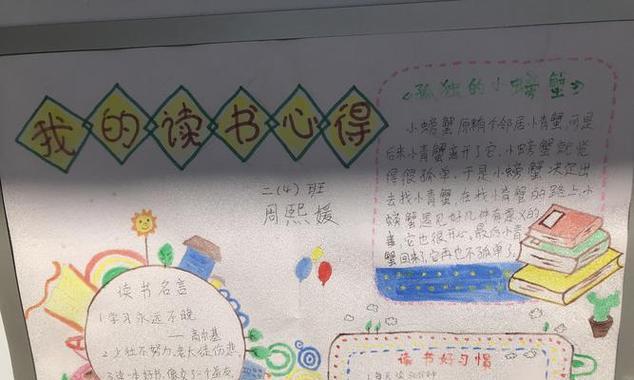 我的读书心得
二(4)班
周熙媛
《孤独的小螃蟹》
小螃蟹原有个邻居小青蟹,可是
后来小青蟹离开了它,小螃蟹就觉
得很孤单,于是小螃蟹决定出
去找小青蟹,在找小青蟹的路上,小
螃蟹遇见好几件有意义的
事,它也很开心,最后小青
蟹回来了,它再也不孤单了。
读书名言
1.学习永远不晚
——高尔基
2.少壮不努力,老大徒伤悲
3.读一本好书,像交了一个益友
读书好习惯